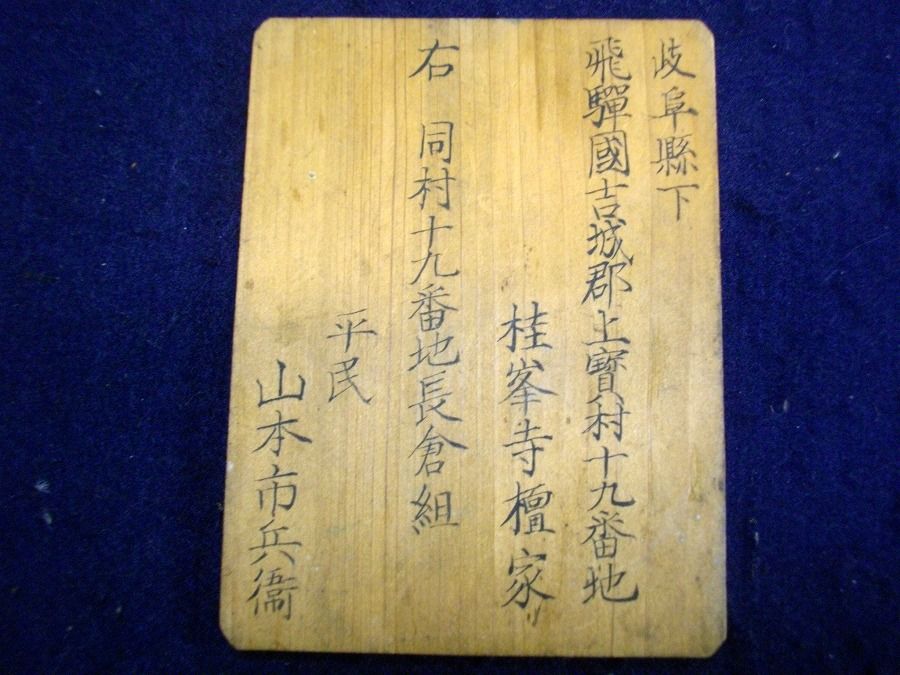 岐阜縣下
飛驒國吉城郡上寶村十九番地
桂峯寺檀家
右 同村十九番地長倉組
平民
山本市兵衞